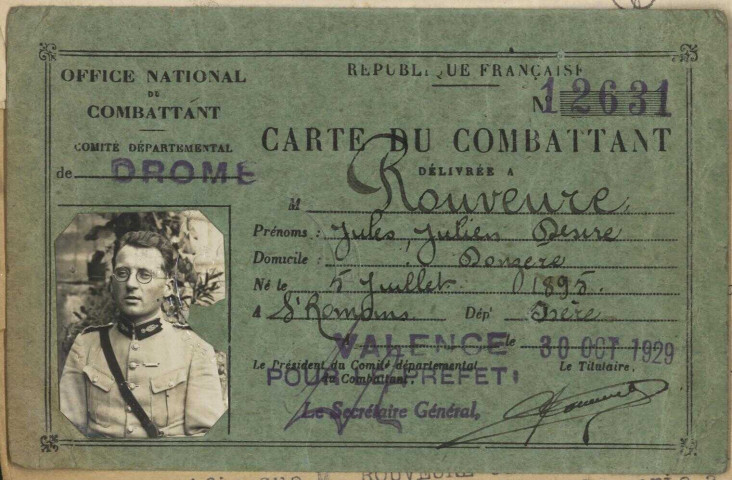 OFFICE NATIONAL
DU
COMBATTANT
COMITÉ DÉPARTEMENTAL
de DROME
RÉPUBLIQUE FRANÇAISE
N° 12631
CARTE DU COMBATTANT
DÉLIVRÉE A
M Rouveure
Prénoms : Jules, Julien Désiré
Domicile : Donzère
Né le 5 Juillet 1895.
A St Romans Dépt Isère
A VALENCE le 30 OCT 1929
Le Président du Comité départemental
du Combattant.
Le Titulaire,
POUR LE PREFET:
Le Secrétaire Général,
ROUVEURE